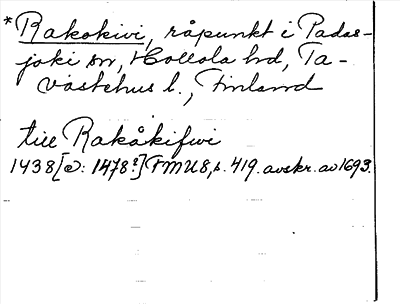 *Rakokivi, råpunkt i Padas-
joki sn, Hollola hd, Ta-
vastehus l., Finland
till Rakåkifwi
1438[ɔ: 1478?] FMU 8, s. 419. avskr. av 1693.